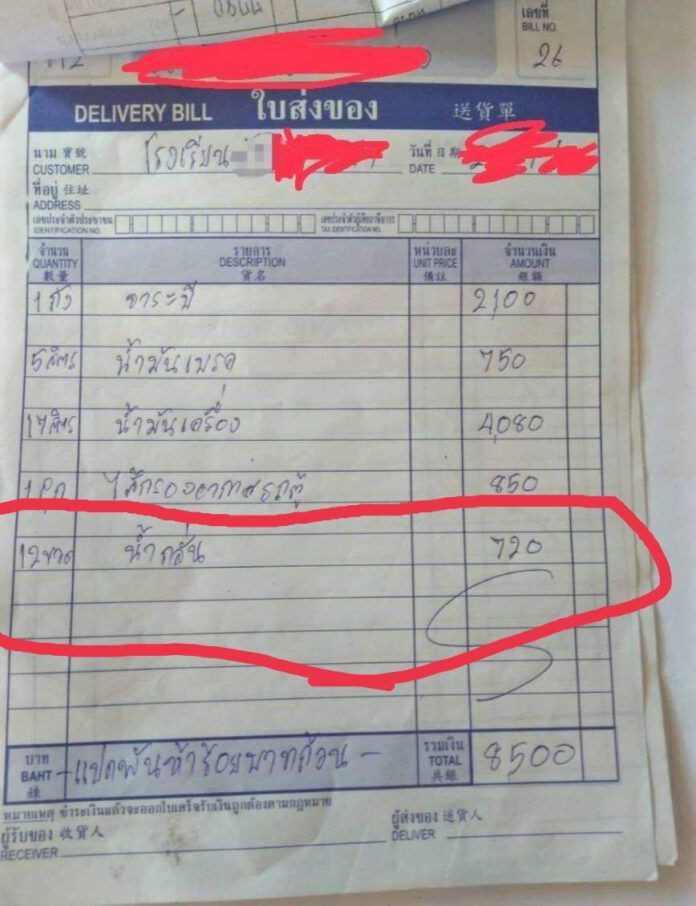 เลขที่
BILL NO.
26
DELIVERY BILL ใบส่งของ 送貨單
นาม 寳號
CUSTOMER โรงเรียน
วันที่ 日期
DATE
ที่อยู่ 住址
ADDRESS
เลขประจำตัวประชาชน
IDENTIFICATION NO.
เลขประจำตัวผู้เสียภาษีอากร
TAX IDENTIFICATION NO.
จำนวน รายการ หน่วยละ จำนวนเงิน
QUANTITY DESCRIPTION UNIT PRICE AMOUNT
數量 貨名 備註 銀額
1 ถัง จาระบี 2,100
5 ลิตร น้ำมันเบรค 750
17 ลิตร น้ำมันเครื่อง 4,080
1 ลูก ไส้กรองอากาศรถตู้ 850
12 ขวด น้ำกลั่น 720
บาท
BAHT - แปดพันห้าร้อยบาทถ้วน -
รวมเงิน
TOTAL 8500
共銀
หมายเหตุ ชำระเงินแล้วจะออกใบเสร็จรับเงินถูกต้องตามกฎหมาย
ผู้รับของ 收貨人
RECEIVER
ผู้ส่งของ 送貨人
DELIVER